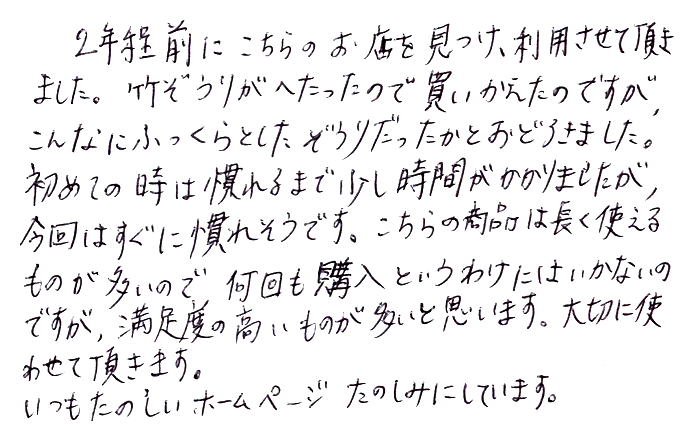 2年程前にこちらのお店を見つけ、利用させて頂き
ました。竹ぞうりがへたったので買いかえたのですが、
こんなにふっくらとしたぞうりだったかとおどろきました。
初めての時は慣れるまで少し時間がかかりましたが、
今回はすぐに慣れそうです。こちらの商品は長く使える
ものが多いので何回も購入というわけにはいかないの
ですが、満足度の高いものが多いと思います。大切に使
わせて頂きます。
いつもたのしいホームページたのしみにしています。